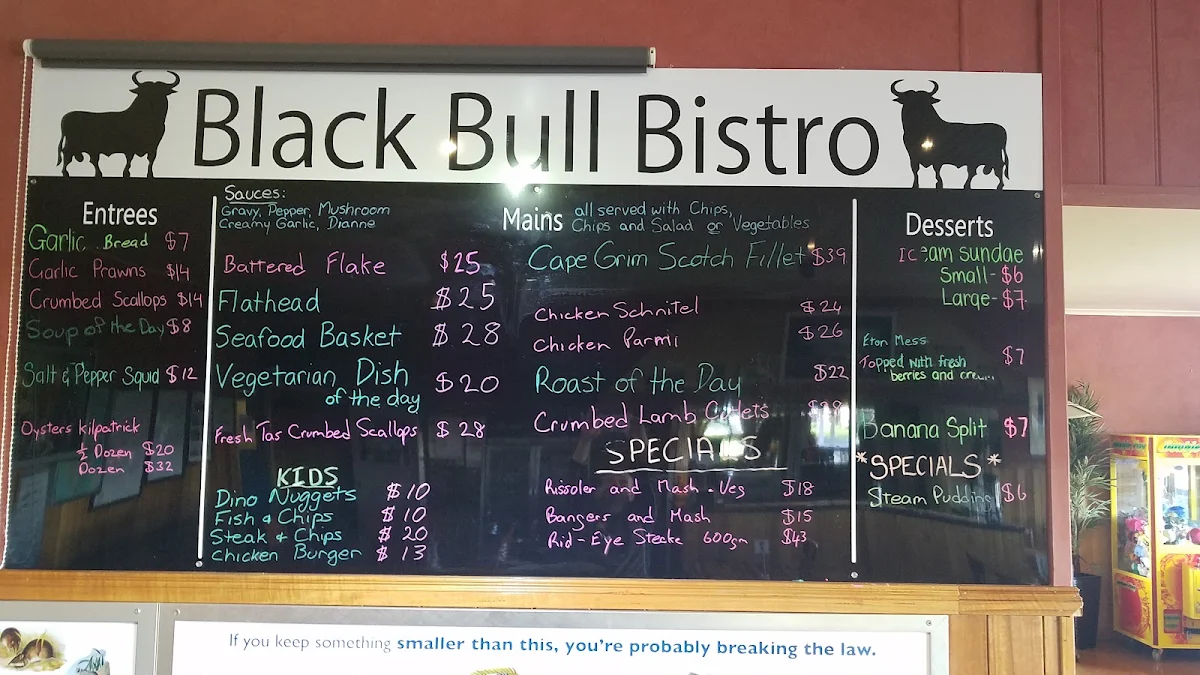 Black Bull Bistro
Entrees
Garlic Bread $7
Garlic Prawns $14
Crumbed Scallops $14
Soup of the Day $8
Salt & Pepper Squid $12
Oysters Kilpatrick
½ Dozen $20
Dozen $32
Sauces:
Gravy, Pepper, Mushroom
Creamy Garlic, Dianne
Battered Flake $25
Flathead $25
Seafood Basket $28
Vegetarian Dish $20
of the day
Fresh Tas Crumbed Scallops $28
KIDS
Dino Nuggets $10
Fish & Chips $10
Steak & Chips $20
Chicken Burger $13
Mains all served with Chips,
Chips and Salad or Vegetables
Cape Grim Scotch Fillet $39
Chicken Schnitel $24
Chicken Parmi $26
Roast of the Day $22
Crumbed Lamb Cutlets
SPECIALS
Rissoler and Mash - Veg $18
Bangers and Mash $15
Rid-Eye Steake 600gm $43
Desserts
sundae
Small- $6
Large- $7
Eton Mess
Topped with fresh $7
berries and cream
Banana Split $7
*SPECIALS*
Steam Pudding $6
If you keep something smaller than this, you're probably breaking the law.